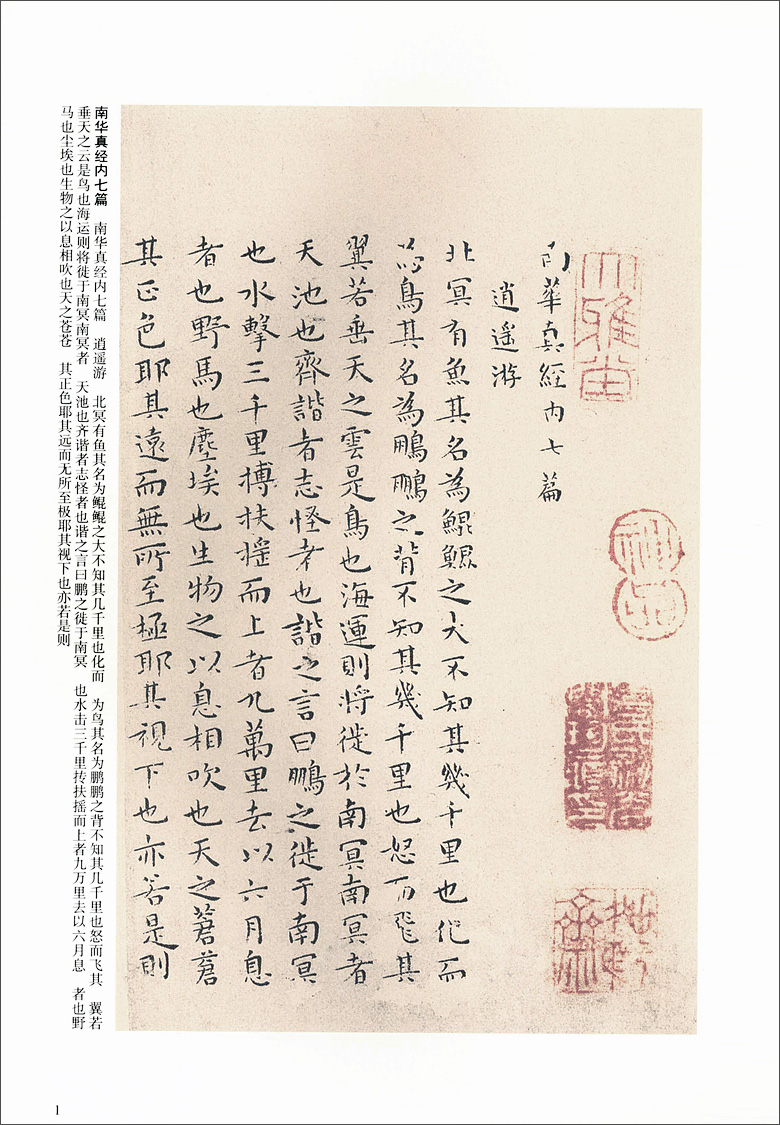 大雅堂
神品
南華真經内七篇
逍遥游
北冥有魚其名為鯤鯤之大不知其幾千里也化而
為鳥其名為鵬鵬之背不知其幾千里也怒而飛其
翼若垂天之雲是鳥也海運則將徙於南冥南冥者
天池也齊諧者志怪者也諧之言曰鵬之徙于南冥
也水擊三千里摶扶揺而上者九萬里去以六月息
者也野馬也塵埃也生物之以息相吹也天之蒼蒼
其正色耶其遠而無所至極耶其視下也亦若是則
南华真经内七篇　南华真经内七篇　逍遥游　北冥有鱼其名为鲲鲲之大不知其几千里也化而　为鸟其名为鹏鹏之背不知其几千里也怒而飞其　翼若
垂天之云是鸟也海运则将徙于南冥南冥者　天池也齐谐者志怪者也谐之言曰鹏之徙于南冥　也水击三千里抟扶摇而上者九万里去以六月息　者也野
马也尘埃也生物之以息相吹也天之苍苍　其正色耶其远而无所至极耶其视下也亦若是则
1